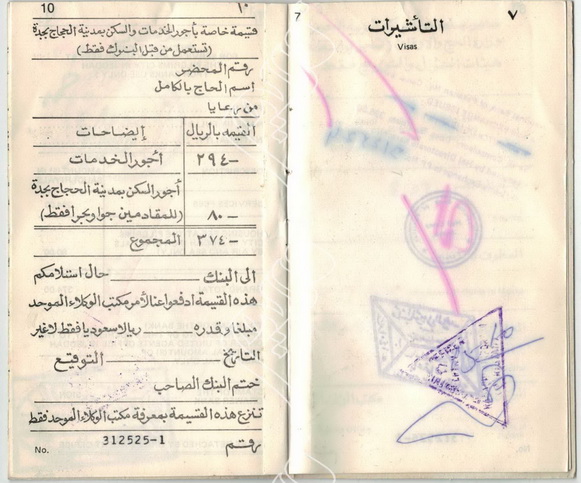 10 ١٠
قسيمة خاصة بأجور الخدمات والسكن بمدينة الحجاج بجدة
(تستعمل من قبل البنوك فقط)
رقم المحضر
اسم الحاج بالكامل
من رعايا
القيمة بالريال إيضاحات
٢٩٤- أجور الخدمات
أجور السكن بمدينة الحجاج بجدة
٨٠- (للقادمين جوا وبحرا فقط)
٣٧٤- المجموع
الى البنك حال استلامكم
هذه القسيمة ادفعوا عنا لأمر مكتب الوكلاء الموحد
مبلغا وقدره ريالا سعوديا فقط لاغير
التاريخ التوقيع
ختم البنك الصاحب
تنزع هذه القسيمة بمعرفة مكتب الوكلاء الموحد فقط
No. 312525-1 رقم
7 ٧
التأشيرات
Visas